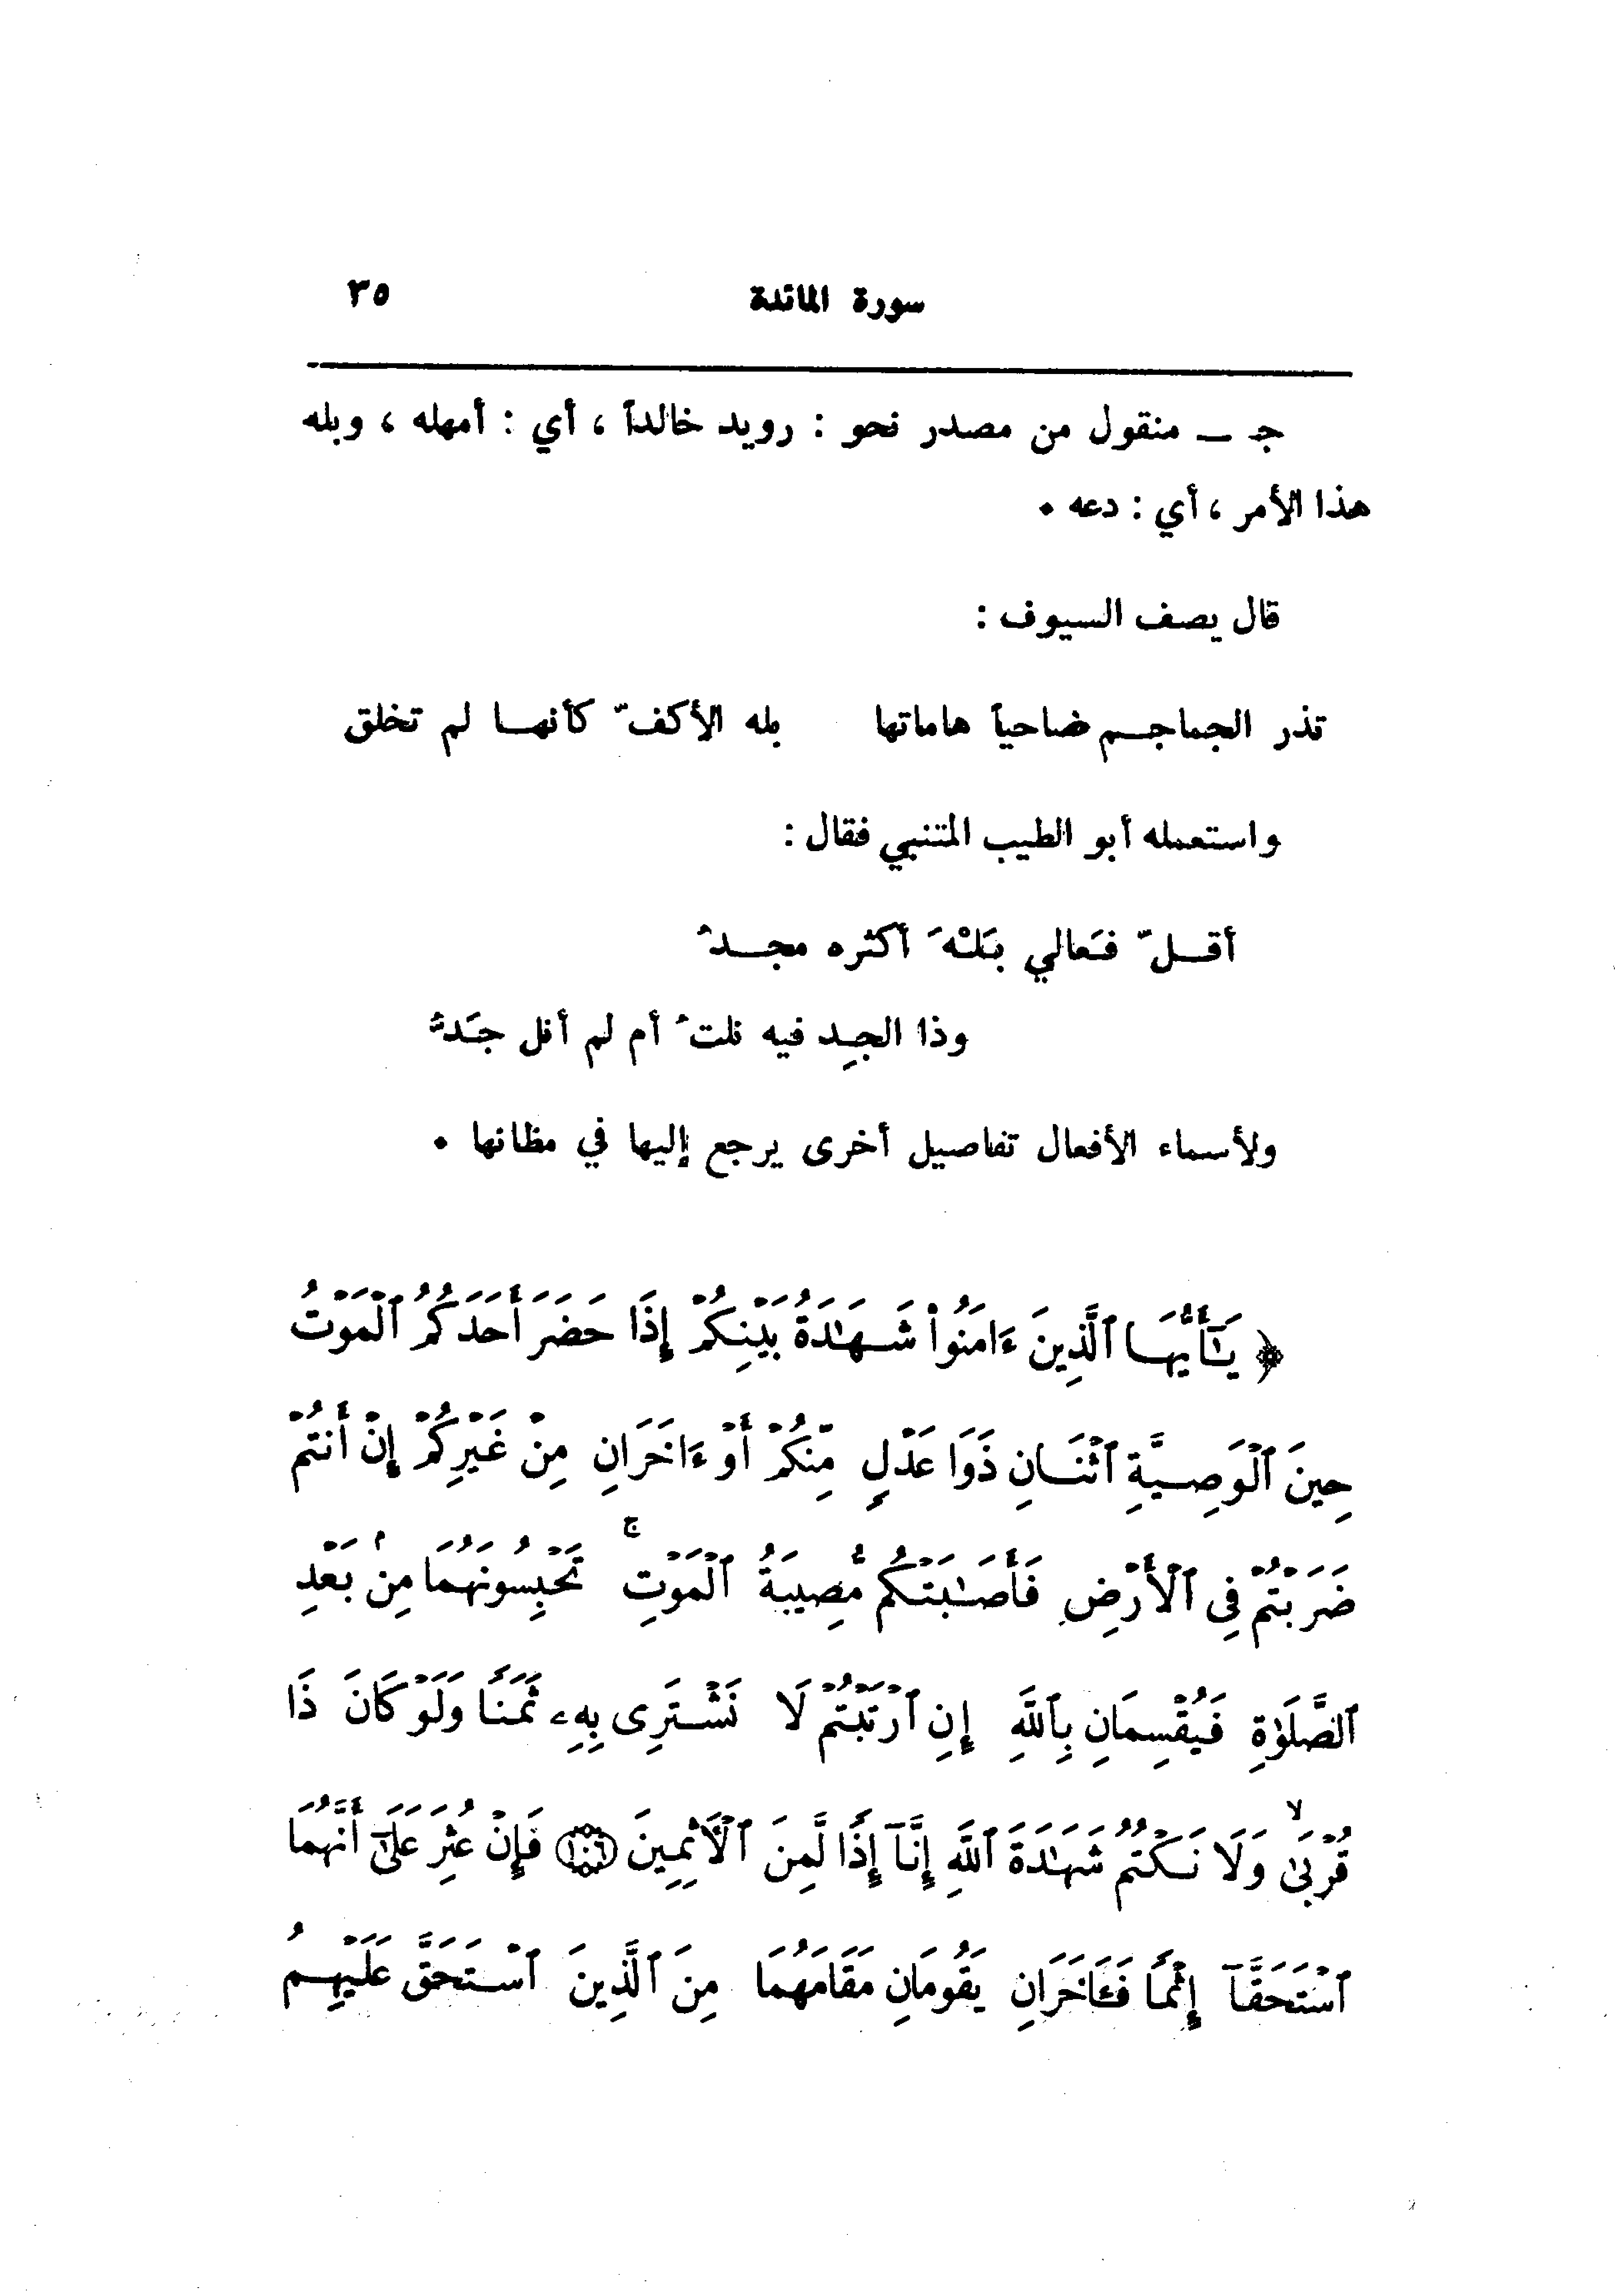 سورة المائدة ٣٥
جـ ـ منقول من مصدر نحو : رويد خالداً ، أي : أمهله ، وبله
هذا الأمر ، أي : دعه ٠
قال يصف السيوف :
تذر الجماجـم ضاحياً هاماتها بله الأكفّ كأنهـا لم تخلق
واستعمله أبو الطيب المتنبي فقال :
أقـلّ فَعالي بَلْهَ أكثره مجـدُ
وذا الجِد فيه نلتُ أم لم أنل جَدُّ
ولأسماء الأفعال تفاصيل أخرى يرجع إليها في مظانها ٠
﴿ يَٰٓأَيُّهَا ٱلَّذِينَ ءَامَنُوا۟ شَهَٰدَةُ بَيْنِكُمْ إِذَا حَضَرَ أَحَدَكُمُ ٱلْمَوْتُ
حِينَ ٱلْوَصِيَّةِ ٱثْنَانِ ذَوَا عَدْلٍ مِّنكُمْ أَوْ ءَاخَرَانِ مِنْ غَيْرِكُمْ إِنْ أَنتُمْ
ضَرَبْتُمْ فِى ٱلْأَرْضِ فَأَصَٰبَتْكُم مُّصِيبَةُ ٱلْمَوْتِ ۚ تَحْبِسُونَهُمَا مِنۢ بَعْدِ
ٱلصَّلَوٰةِ فَيُقْسِمَانِ بِٱللَّهِ إِنِ ٱرْتَبْتُمْ لَا نَشْتَرِى بِهِۦ ثَمَنًا وَلَوْ كَانَ ذَا
قُرْبَىٰ ۙ وَلَا نَكْتُمُ شَهَٰدَةَ ٱللَّهِ إِنَّآ إِذًا لَّمِنَ ٱلْـَٔاثِمِينَ ١٠٦ فَإِنْ عُثِرَ عَلَىٰٓ أَنَّهُمَا
ٱسْتَحَقَّآ إِثْمًا فَـَٔاخَرَانِ يَقُومَانِ مَقَامَهُمَا مِنَ ٱلَّذِينَ ٱسْتَحَقَّ عَلَيْهِمُ